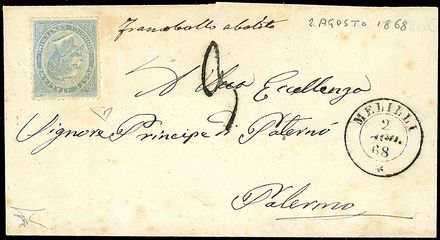 Francobollo abolito
2 AGOSTO 1868
A Sua Eccellenza
Signore Principe di Paternò
Palermo
MELILLI
2
68